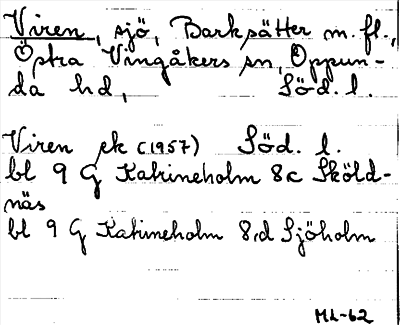 Viren, sjö, Barksätter m.fl.,
Östra Vingåkers sn, Oppun-
da hd, Söd. l.
Viren ek (1957) Söd. l.
bl 9 G Katrineholm 8c Sköld-
näs
bl 9 G Katrineholm 8,d Sjöholm
ML-62